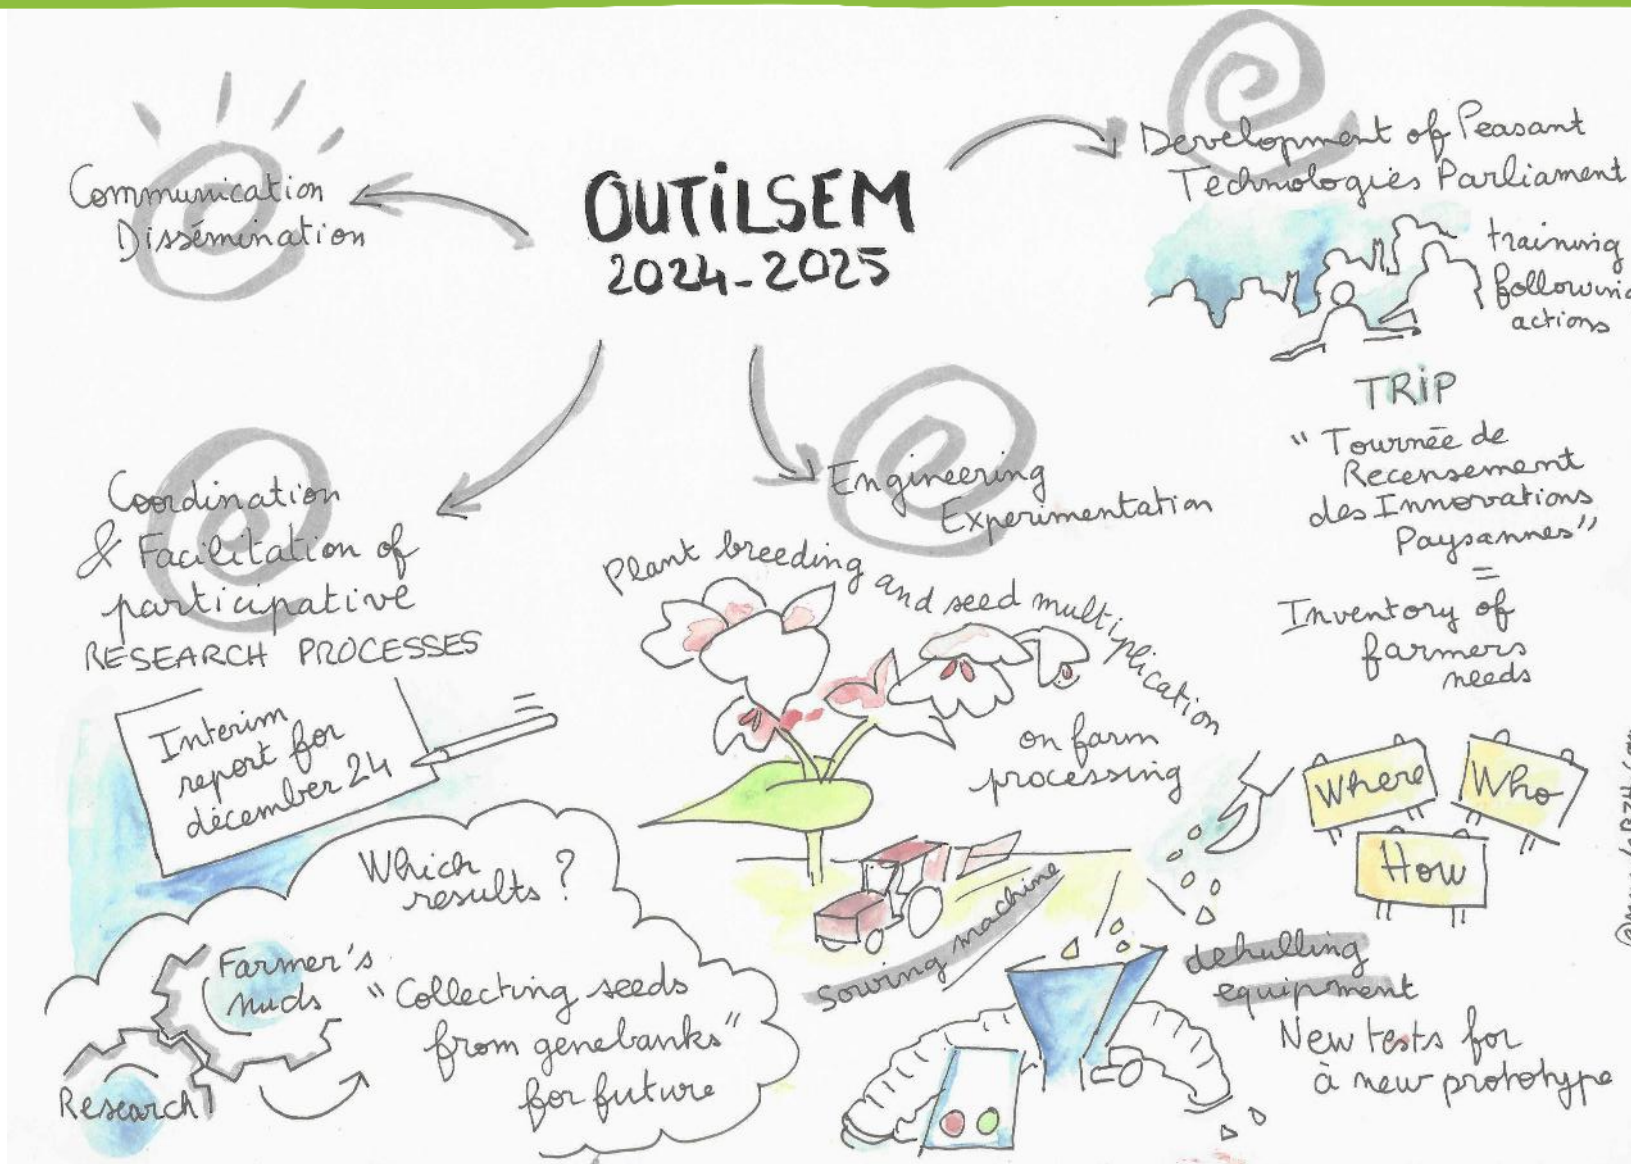 OUTiLSEM
2024-2025
Communication
Dissémination
Development of Peasant
Technologies Parliament
training
following
actions
TRiP
"Tournée de
Recensement
des Innovations
Paysannes"
=
Inventory of
farmers
needs
Where
Who
How
Coordination
& Facilitation of
participative
RESEARCH PROCESSES
Interim
report for
décember 24
Which
results ?
Farmer's
nuds
Research
"Collecting seeds
from genebanks"
for future
Engineering
Experimentation
Plant breeding and seed multiplication
on farm
processing
Sowing machine
dehulling
equipment
New tests for
à new prototype